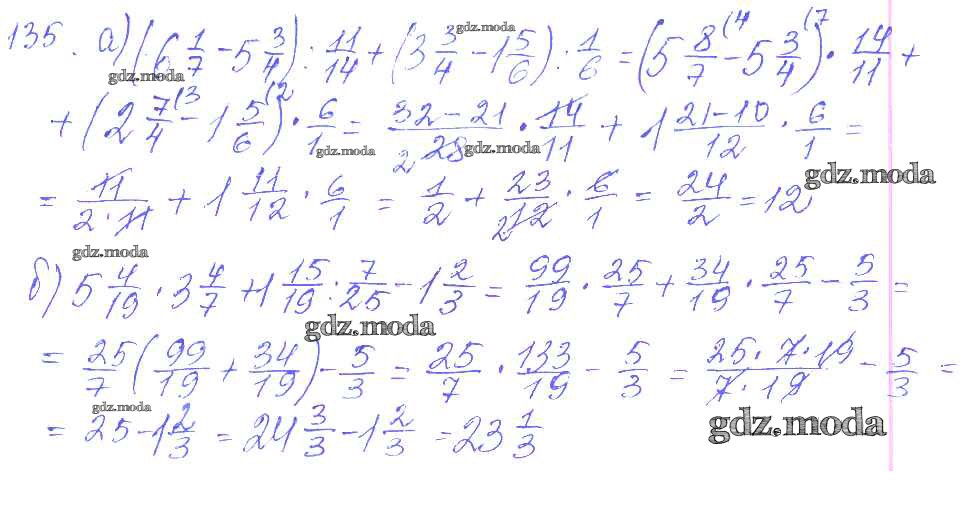 135. а) (6 1/7 - 5 3/4) : 11/14 + (3 3/4 - 1 5/6) : 1/6 = (5 8/7 (4 - 5 3/4 (7) · 14/11 +
+ (2 7/4 (3 - 1 5/6 (2) · 6/1 = 32-21/28 2 · 14/11 + 1 21-10/12 · 6/1 =
= 11/2·11 + 1 11/12 · 6/1 = 1/2 + 23/12 2 · 6/1 = 24/2 = 12
б) 5 4/19 · 3 4/7 + 1 15/19 : 7/25 - 1 2/3 = 99/19 · 25/7 + 34/19 · 25/7 - 5/3 =
= 25/7 (99/19 + 34/19) - 5/3 = 25/7 · 133/19 - 5/3 = 25·7·19/7·19 - 5/3 =
= 25 - 1 2/3 = 24 3/3 - 1 2/3 = 23 1/3
gdz.moda
gdz.moda
gdz.moda
gdz.moda
gdz.moda
gdz.moda
gdz.moda
gdz.moda
gdz.moda